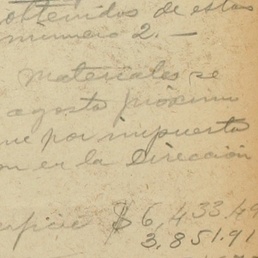 obtenidos de estos
número 2.—
materiales se
agosto próximo
que por impuesto
on en la Dirección
erficie $6,433.49
3.851.91